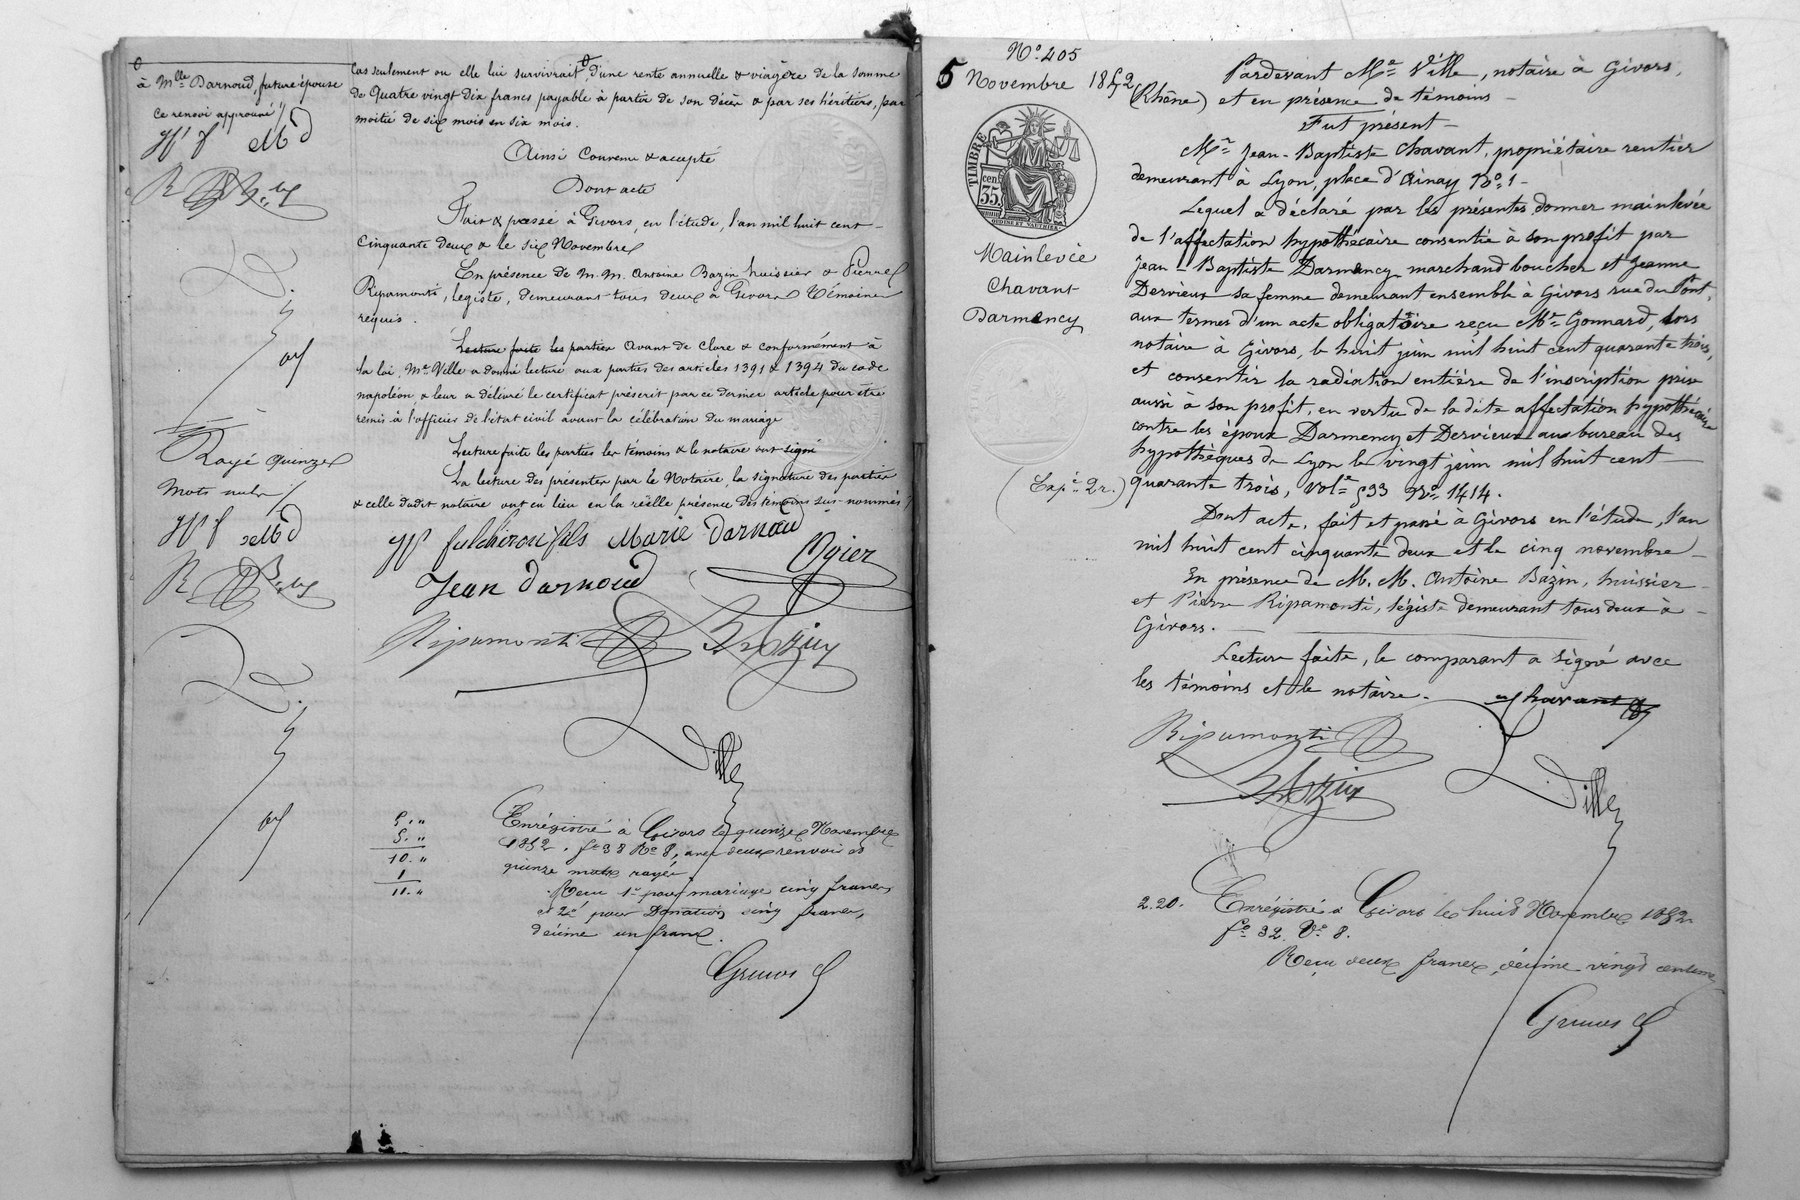 à Mlle Darnoud, future épouse
ce renvoi approuvé
Hr f MD
R
Rayé quinze
mots nuls
Hr f MD
R
cas seulement ou elle lui survivrait, d'une rente annuelle & viagère de la somme
de Quatre vingt dix francs payable à partir de son décès & par ses héritiers, par
moitié de six mois en six mois.
Ainsi Convenu & accepté
Dont acte
Fait & passé à Givors, en l'étude, l'an mil huit cent
Cinquante deux & le six Novembre
En présence de M.M. Antoine Bazin huissier & Pierre
Ripamonti, légiste, demeurant tous deux à Givors Témoins
requis.
Lecture faite les parties Avant de clore & conformément à
la loi, Me Ville a donné lecture aux parties des articles 1391 & 1394 du code
napoléon, & leur a délivré le certificat préscrit par ce dernier article pour être
remis à l'officier de l'état civil avant la célébration du mariage
Lecture faite les parties les témoins & le notaire ont signé
La lecture des présentes par le Notaire, la signature des parties
& celle dudit notaire ont eu lieu en la réelle présence des témoins sus-nommés
Hr fulchiron fils Marie Darnoud
Ogier
Jean Darnoud
Ripamonti Bazin
Ville
5. "
5. "
10. "
1
11. "
Enrégistré à Givors le quinze Novembre
1852. fo 38 Ro 8, avec deux renvois et
quinze mots rayés.
Reçu 1o pour mariage cinq francs
et 2o pour Donation cinq francs,
décime un franc.
No 405
5 Novembre 1852
TIMBRE
35 cen.
Mainlevée
Chavant
Darmency
(Expée 2 r.)
Pardevant Me Ville, notaire à Givors,
(Rhône) et en présence de témoins
Fut présent
Mr Jean-Baptiste Chavant, propriétaire rentier
demeurant à Lyon, place d'Ainay No 1
Lequel a déclaré par les présentes donner mainlevée
de l'affectation hypothécaire consentie à son profit par
Jean-Baptiste Darmency marchand boucher et Jeanne
Dervieux sa femme demeurant ensemble à Givors rue du Pont,
aux termes d'un acte obligatoire reçu Me Gonnard, lors
notaire à Givors, le huit juin mil huit cent quarante trois,
et consentir la radiation entière de l'inscription prise
aussi à son profit, en vertu de la dite affectation hypothécaire
contre les époux Darmency et Dervieux au bureau des
hypothèques de Lyon le vingt juin mil huit cent
quarante trois, vole 533 No 1414.
Dont acte, fait et passé à Givors en l'étude, l'an
mil huit cent cinquante deux et le cinq novembre
En présence de M. M. Antoine Bazin, huissier
et Pierre Ripamonti, légiste demeurant tous deux à
Givors.
Lecture faite, le comparant a signé avec
les témoins et le notaire. Chavant
Ripamonti
Bazin
Ville
2.20. Enrégistré à Givors le huit Novembre 1852
fo 32 Vo 8.
Reçu deux francs, décime vingt centimes